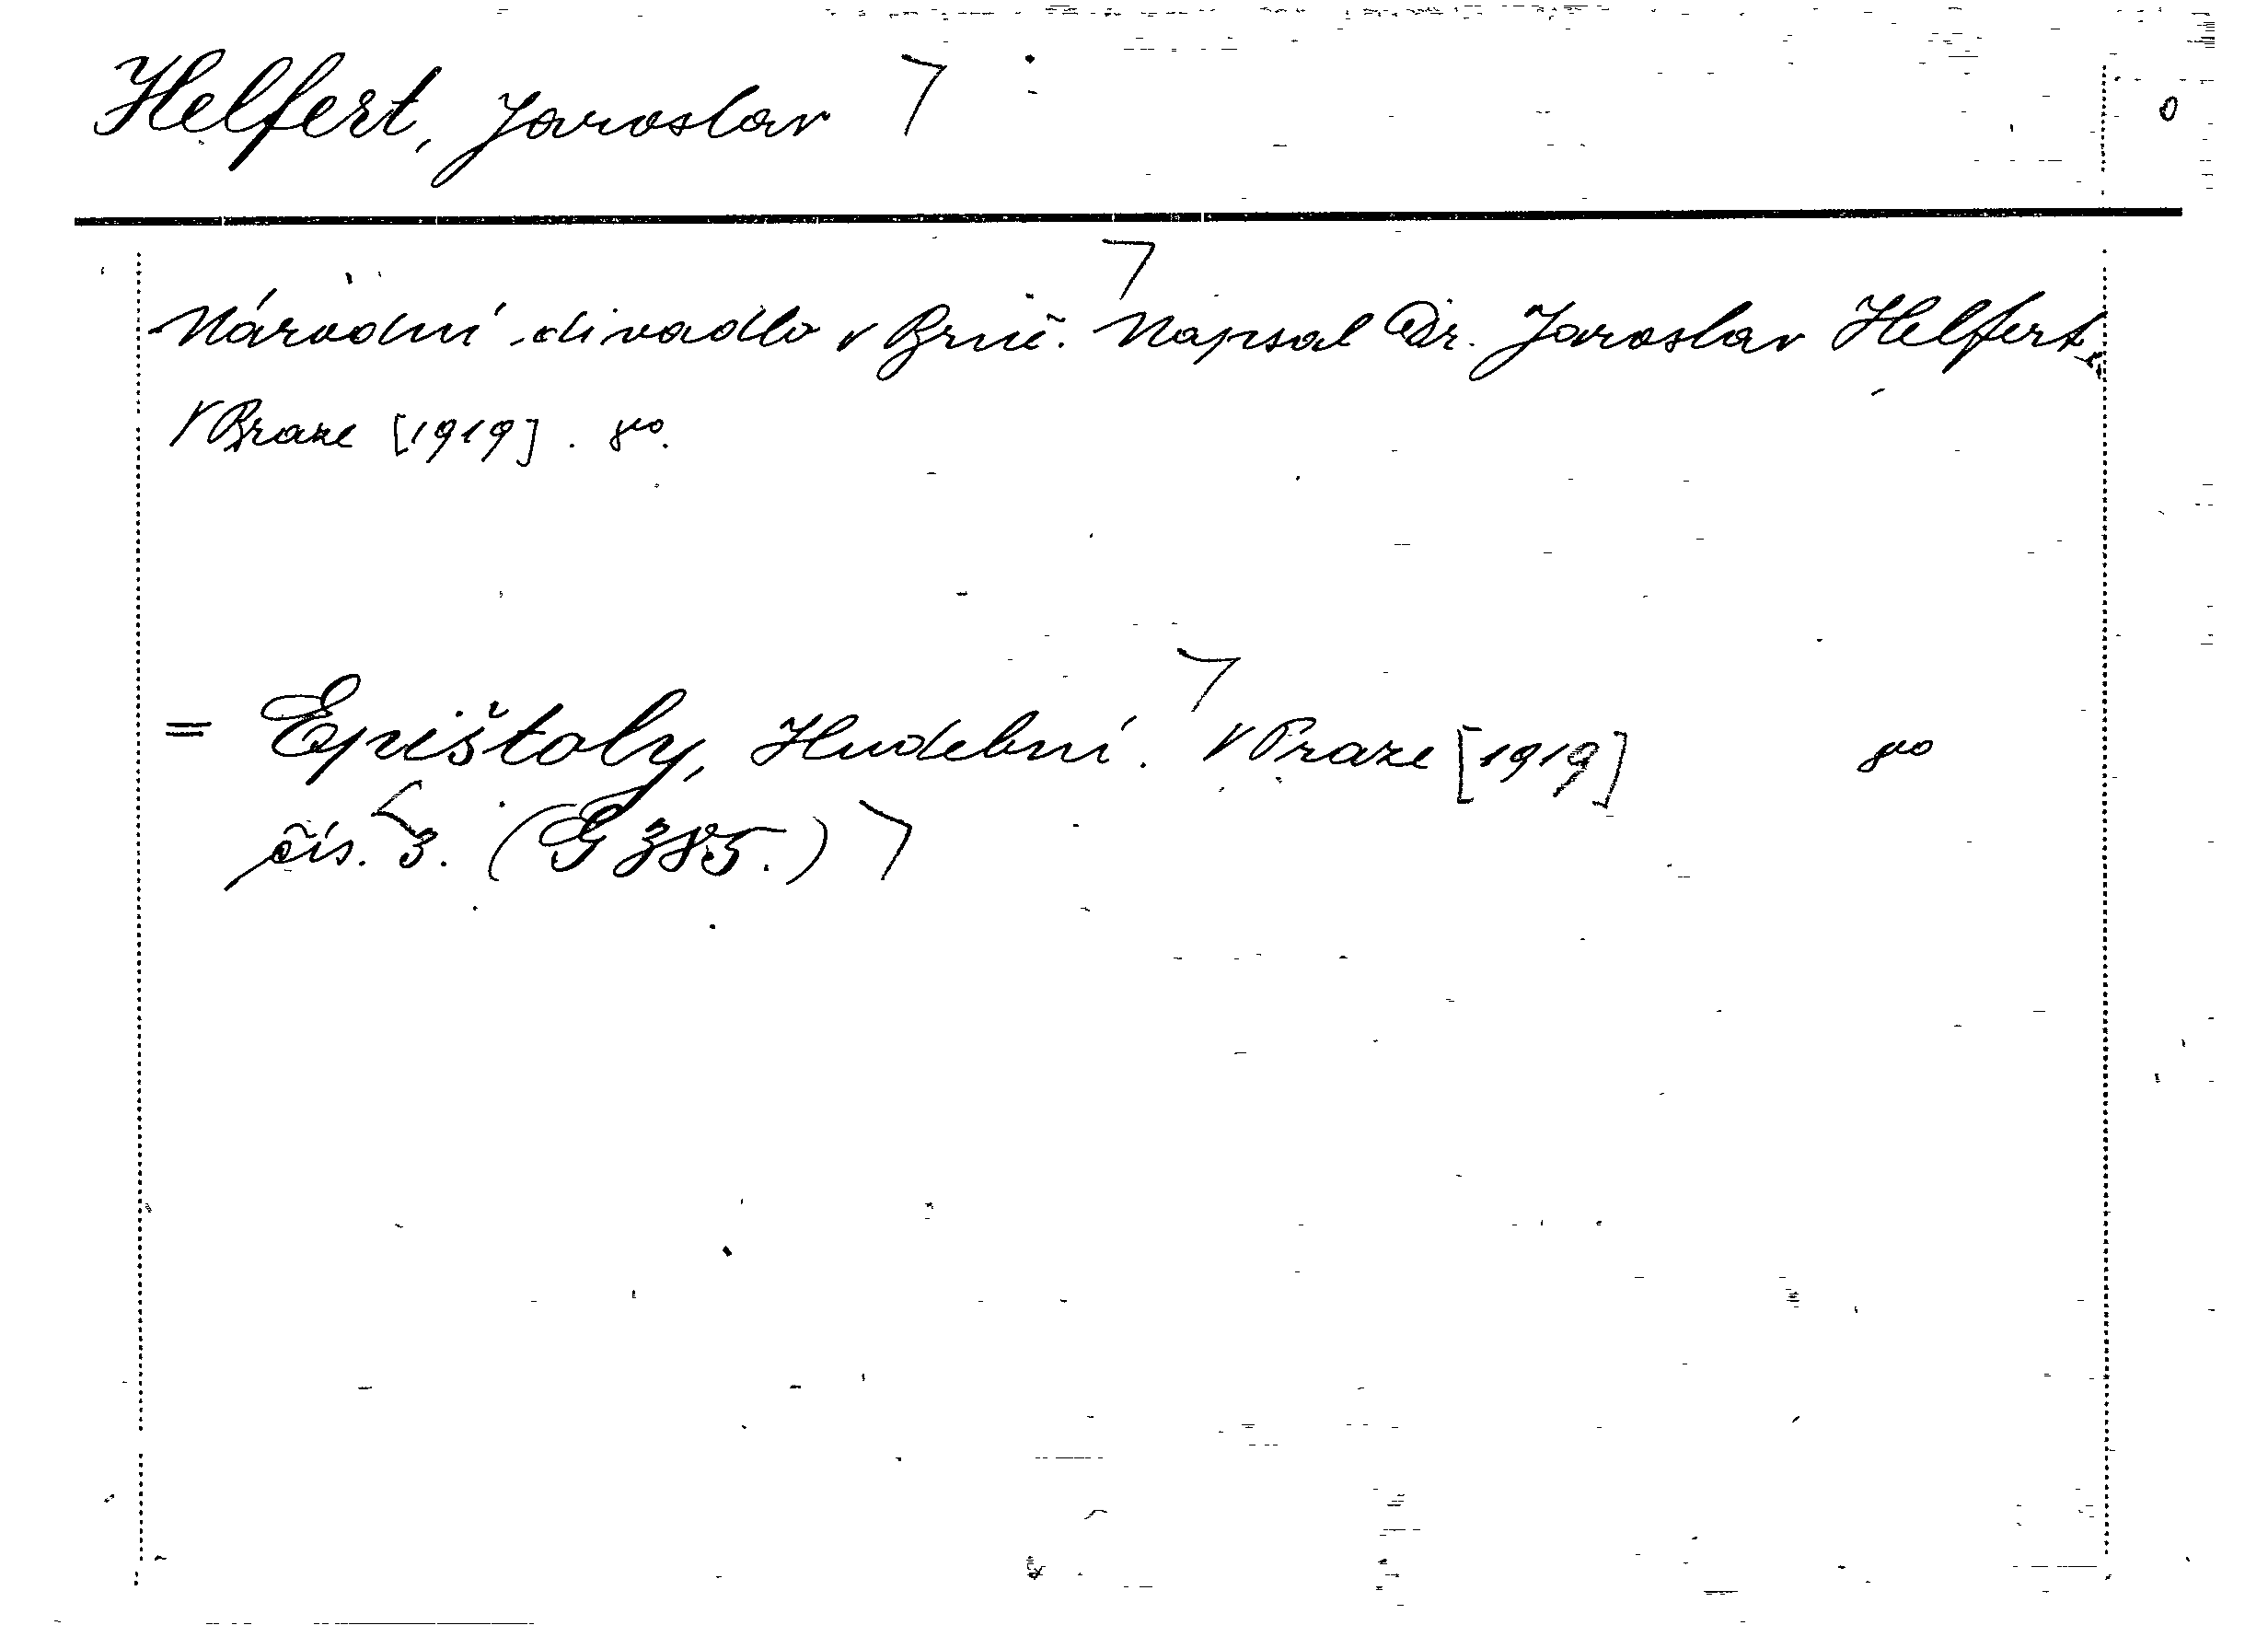 Helfert, Jaroslav
Národní divadlo v Brně. Napsal Dr. Jaroslav Helfert.
V Praze [1919]. 8vo.
= Epištoly, Hudební. V Praze [1919] 8vo
čís. 3. (G 385.)